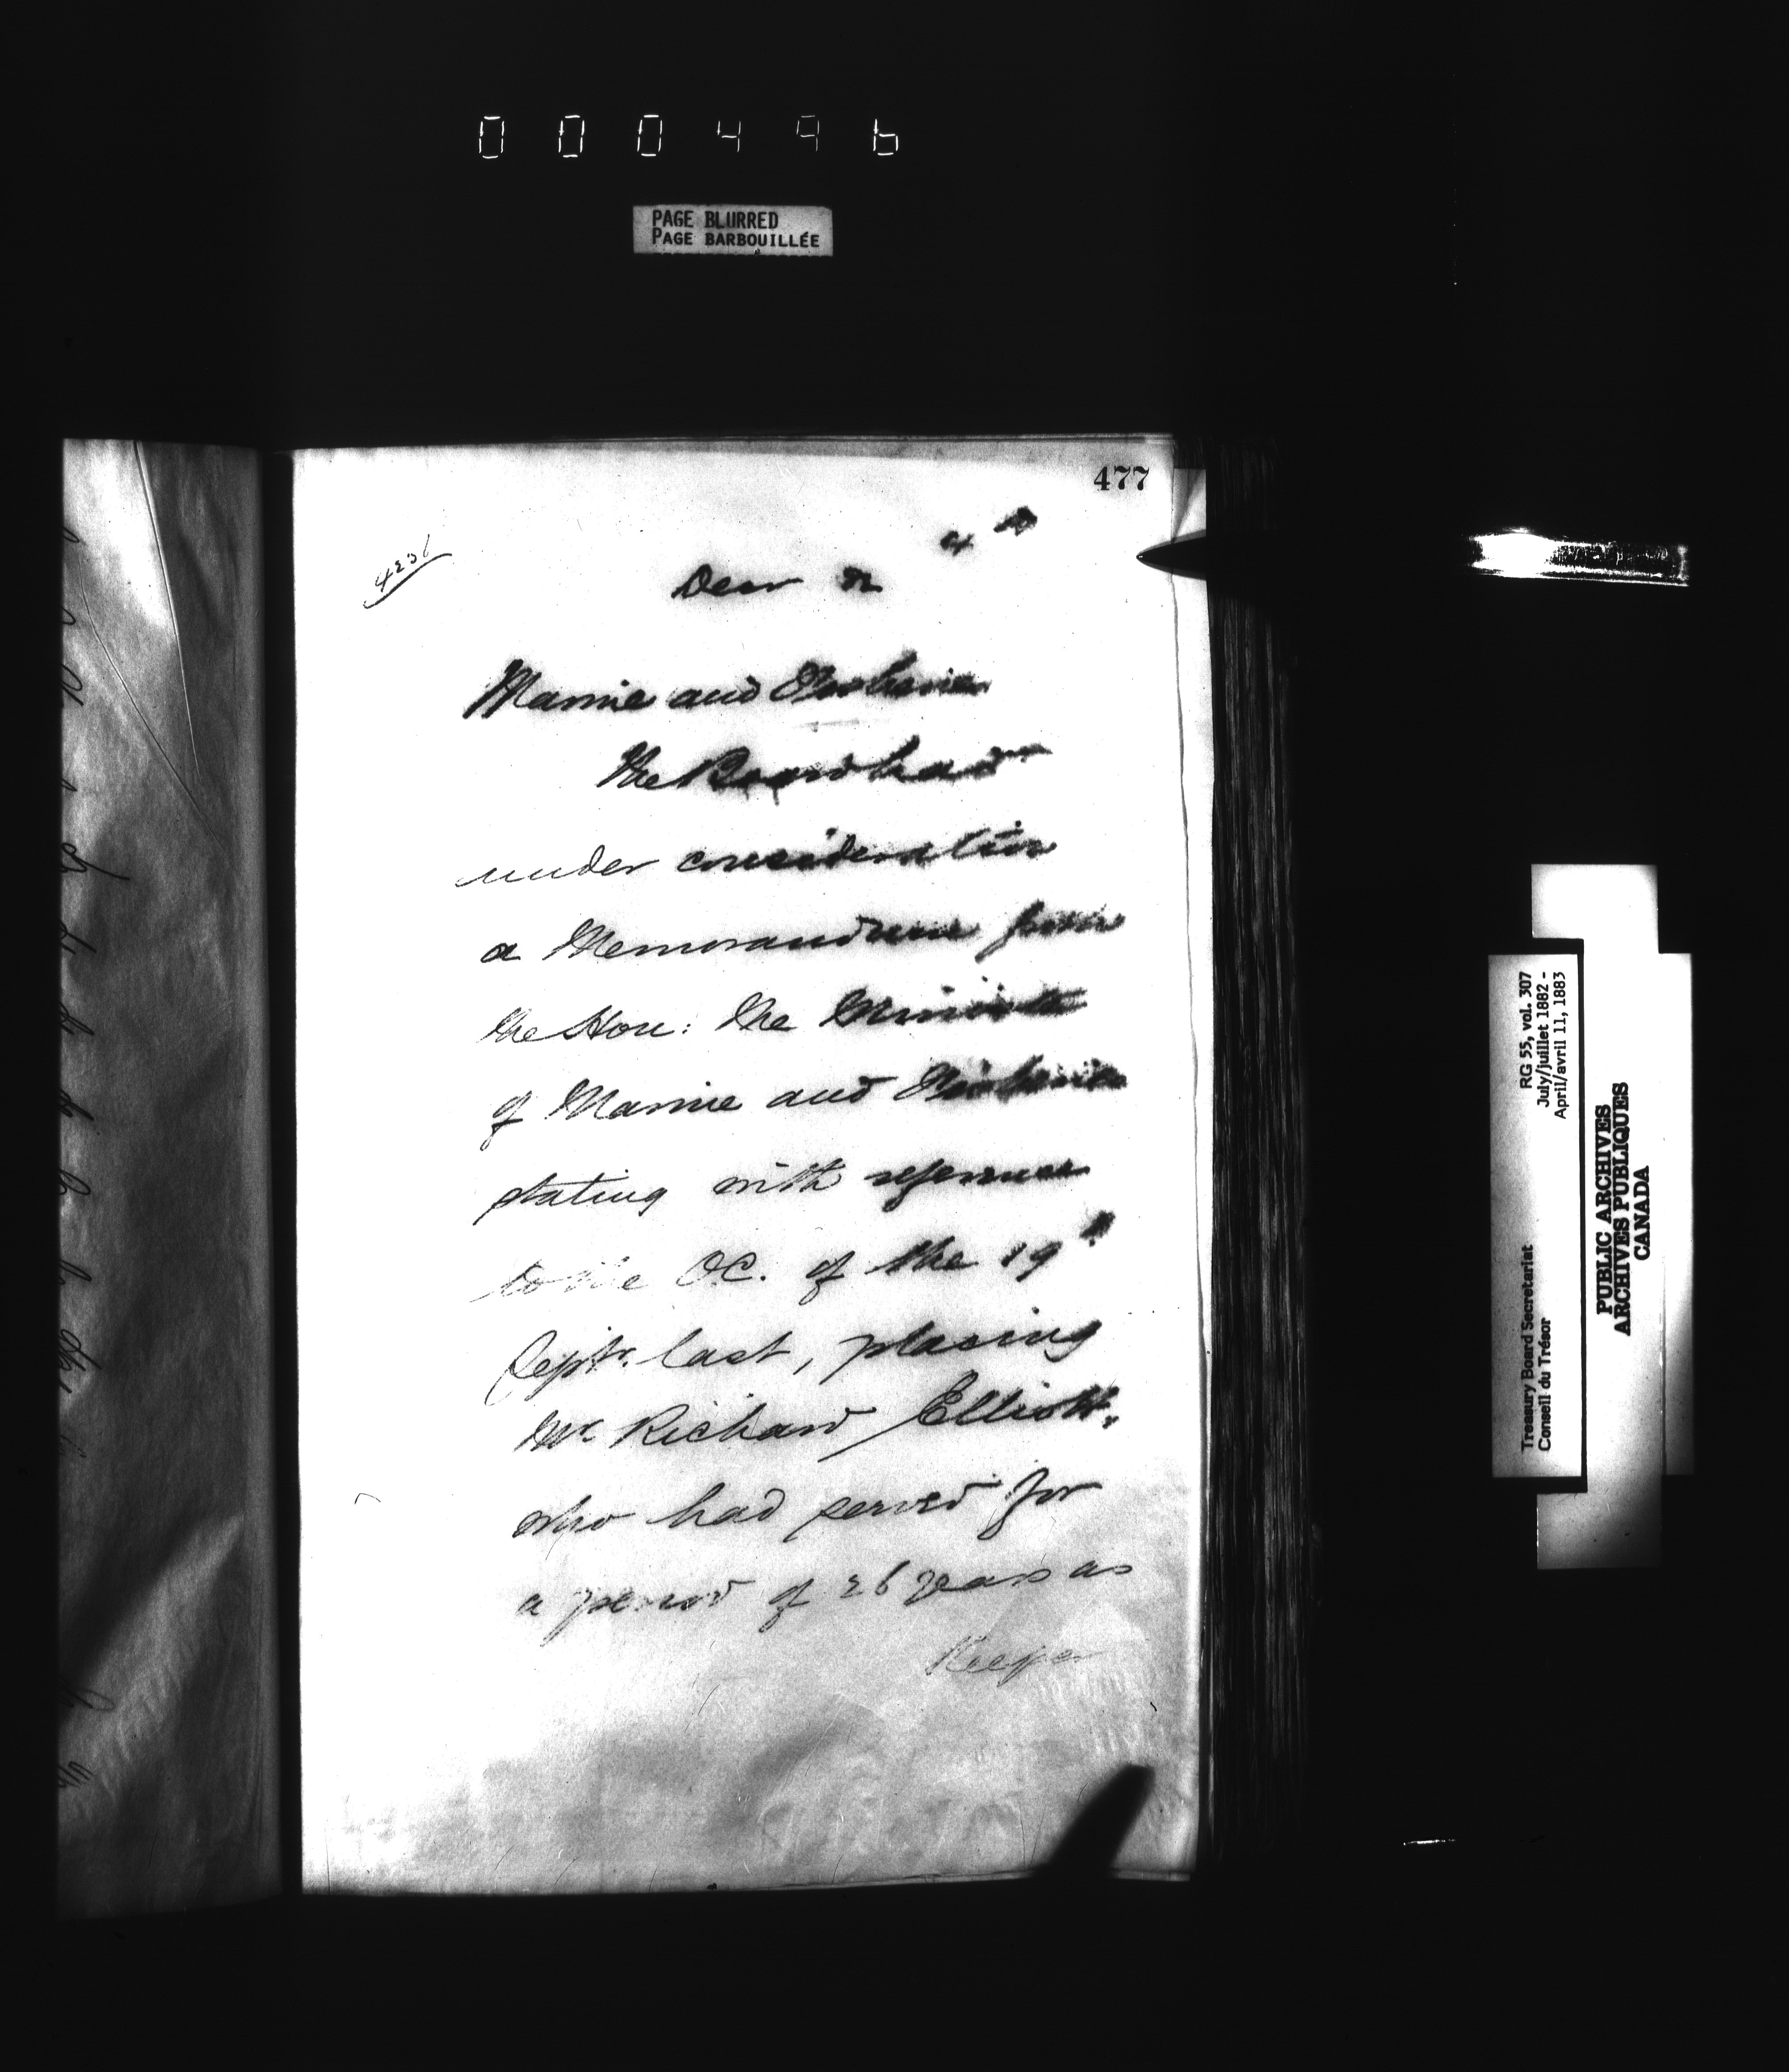 000496
PAGE BLURRED
PAGE BARBOUILLÉE
477
4231
Marine and Fisheries
The Board had
under consideration
a Memorandum from
the Hon: the Minister
of Marine and Fisheries
stating with reference
to the OC. of the 19th
Septr. last, placing
Mr. Richard Elliott,
who had served for
a period of 26 years as
Keeper
RG 55, vol. 307
July/juillet 1882 -
April/avril 11, 1883
Treasury Board Secretariat
Conseil du Trésor
PUBLIC ARCHIVES
ARCHIVES PUBLIQUES
CANADA